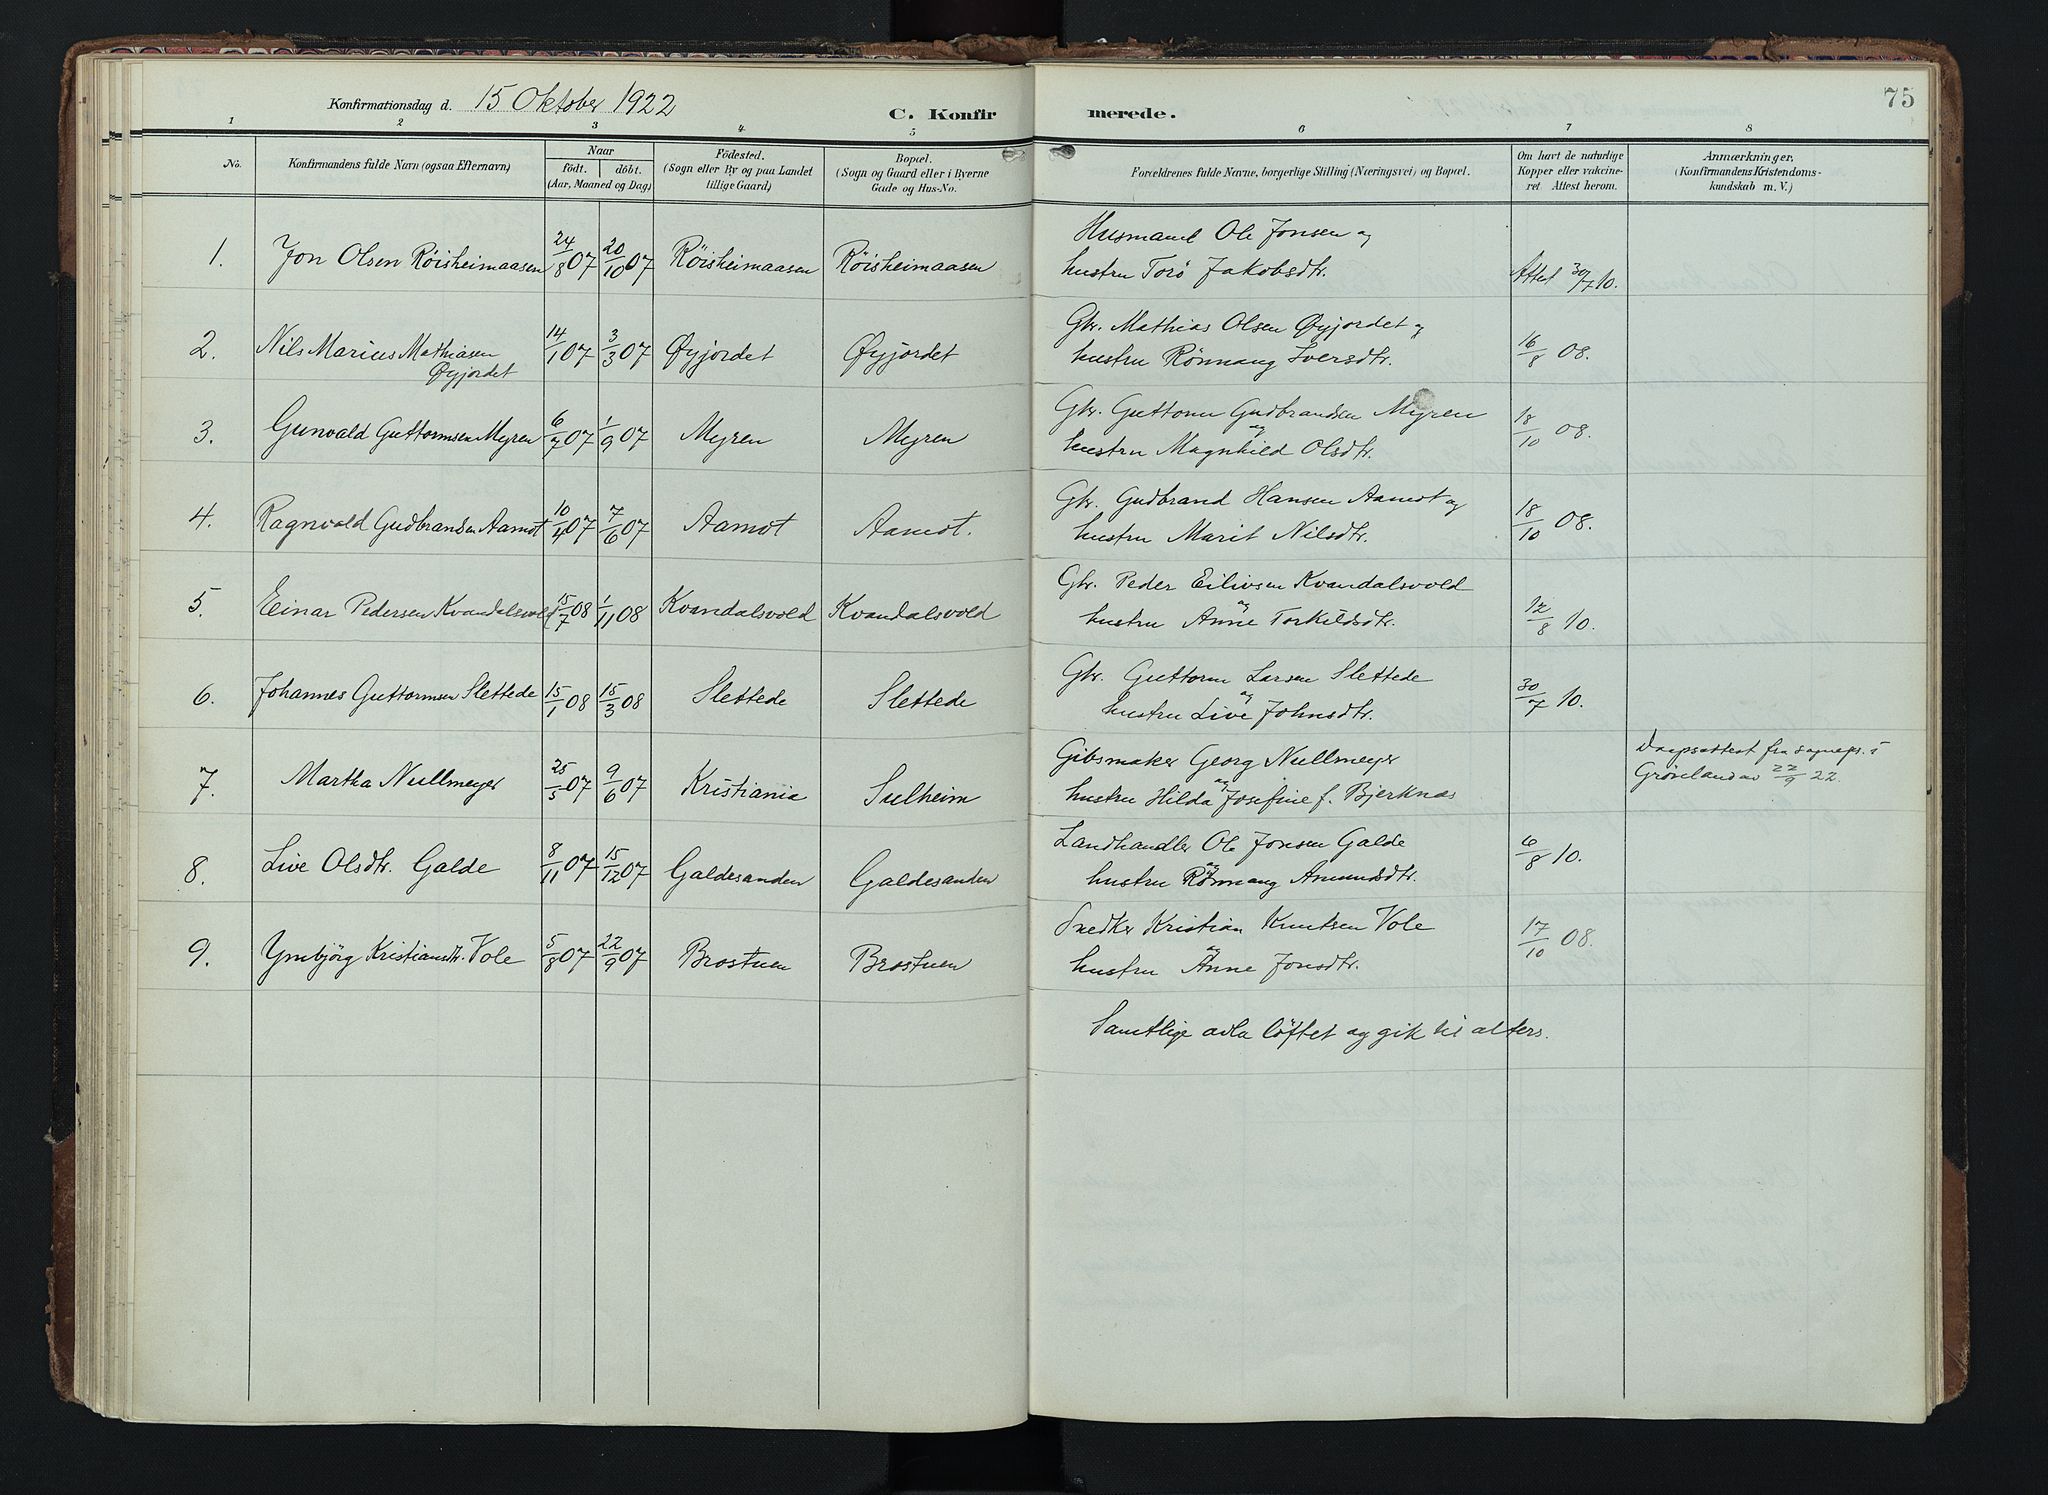 75
Konfirmationsdag d. 15 Oktober 1922
C. Konfirmerede.
1 2 3 4 5 6 7 8
No.
Konfirmandens fulde Navn (ogsaa Efternavn)
Naar
födt. döbt.
(Aar, Maaned og Dag)
Födested.
(Sogn eller By og paa Landet
tillige Gaard)
Bopæl.
(Sogn og Gaard eller i Byerne
Gade og Hus-No.
Forældrenes fulde Navne, borgerlige Stilling (Næringsvei) og Bopæl.
Om havt de naturlige
Kopper eller vakcine-
ret. Attest herom.
Anmærkninger,
(Konfirmandens Kristendoms-
kundskab m. V.)
1. Jon Olsen Röisheimaasen 24/8 07 20/10 07 Röisheimaasen Röisheimaasen
Husmand Ole Jonsen og
hustru Torö Jakobsdtr. Attest 30/7 10.
2. Nils Marius Mathiasen
Øyjordet 14/1 07 3/3 07 Øyjordet Øyjordet
Gbr. Mathias Olsen Øyjordet og
hustru Rönnaug Iversdtr. 16/8 08.
3. Gunvald Guttormsen Myren 6/7 07 1/9 07 Myren Myren
Gbr. Guttorm Gudbrandsen Myren
og
hustru Magnhild Olsdtr. 18/10 08.
4. Ragnvald Gudbrandsen Aamot 10/4 07 7/6 07 Aamot Aamot.
Gbr. Gudbrand Hansen Aamot og
hustru Marit Nilsdtr. 18/10 08.
5. Einar Pedersen Kvandalsvold 15/7 08 1/11 08 Kvandalsvold Kvandalsvold
Gbr. Peder Eilivsen Kvandalsvold
og
hustru Anne Torkildsdtr. 12/8 10.
6. Johannes Guttormsen Slettede 15/1 08 15/3 08 Slettede Slettede
Gbr. Guttorm Larsen Slettede
og
hustru Live Johnsdtr. 30/7 10.
7. Martha Nullmeyer 25/5 07 9/6 07 Kristiania Sulheim
Gibsmaker Georg Nullmeyer
og
hustru Hilda Josefine f. Bjerknas
Daapsattest fra sognepr. i
Grönland av 22/9 22.
8. Live Olsdtr. Galde 8/11 07 15/12 07 Galdesanden Galdesanden
Landhandler Ole Jonsen Galde
og
hustru Rönnaug Amundsdtr. 6/8 10.
9. Ymbjörg Kristiansdtr. Vole 5/8 07 22/9 07 Brostuen Brostuen
Snedker Kristian Knutsen Vole
og
hustru Anne Jonsdtr. 17/10 08.
Samtlige avla löftet og gik til alters.